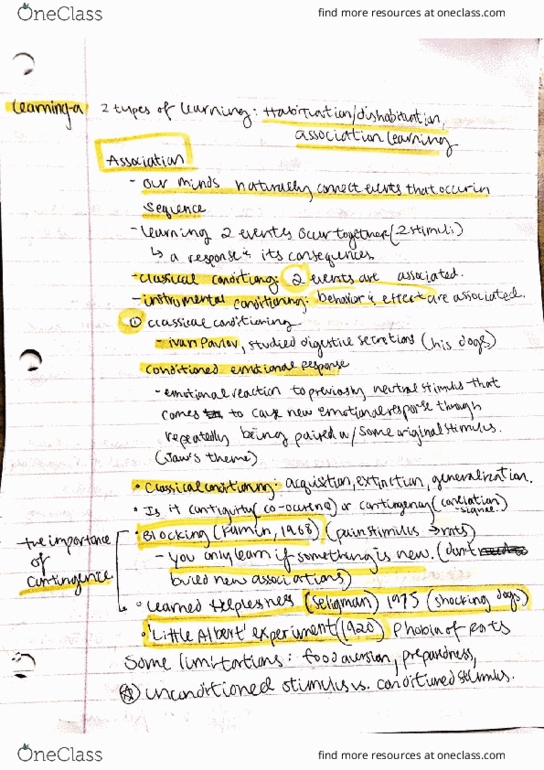 OneClass
find more resources at oneclass.com
Learning-a 2 types of learning: Habituation/dishabituation,
association learning
Association
- our minds naturally connect events that occur in
sequence
- learning 2 events occur together (2 stimuli)
↳ a response & its consequences.
- classical conditiong: 2 events are associated.
- instrumental conditioning: behavior & effect are associated.
① classical conditioning
- ivan Pavlov, studied digestive secretions (his dogs)
conditioned emotional response
- emotional reaction to previously neutral stimulus that
comes to cause new emotional response through
repeatedly being paired w/ some original stimulus.
(Jaw's theme)
• Classical conditioning: acquisition, extinction, generalization.
• Is it contiguity (co-occurine) or contingency (correlation
• Blocking (Kamin, 1968) (pain stimulus → rats)
the importance of contingence
- you only learn if something is new. (don't
build new associations)
• Learned Helplesness (Seligman) 1975 (shocking dogs)
• 'Little Albert' experiment (1920) Phobia of Rats
Some limitations: food aversion, preparedness,
unconditioned stimulus vs. conditioned stimulus.
OneClass
find more resources at oneclass.com